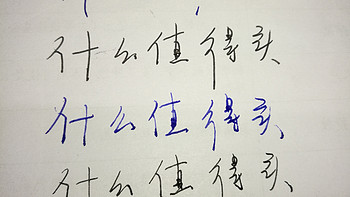 什么值得买
什么值得买
什么值得买